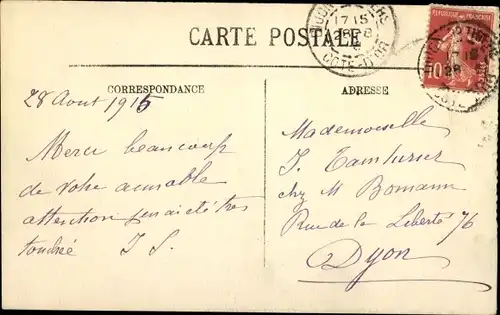 CARTE POSTALE
17 15
28 - 8
COTE-D'OR
REPUBLIQUE FRANÇAISE
10
CORRESPONDANCE
28 Aout 1915
Merci beaucoup
de votre aimable
attention j'en ai été très
touchée J S.
ADRESSE
Mademoiselle
J.
chez M Bomann
Rue de la Liberté 76
Dijon